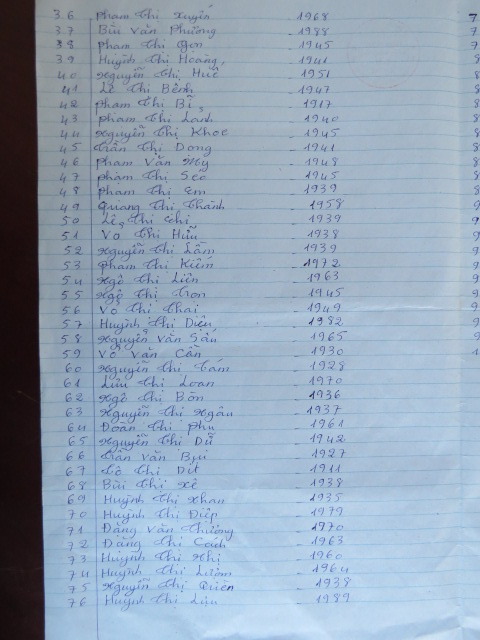 36 Phạm Thị Xuyến - 1968
37 Bùi Văn Phường - 1988
38 Phạm Thị Gọn - 1945
39 Huỳnh Thị Hoàng - 1941
40 Nguyễn Thị Huê - 1951
41 Lê Thị Bênh - 1947
42 Phạm Thị Bỉ - 1917
43 Phạm Thị Lanh - 1940
44 Nguyễn Thị Khoe - 1945
45 Trần Thị Dong - 1941
46 Phạm Văn Mỹ - 1948
47 Phạm Thị Seo - 1945
48 Phạm Thị Em - 1939
49 Quang Thị Thành - 1958
50 Lê Thị Chi - 1939
51 Võ Thị Hữu - 1938
52 Nguyễn Thị Lắm - 1939
53 Phạm Thị Kiếm - 1972
54 Ngô Thị Liên - 1963
55 Ngô Thị Tron - 1945
56 Võ Thị Thai - 1949
57 Huỳnh Thị Diệu - 1982
58 Nguyễn Văn Sáu - 1965
59 Võ Văn Cần - 1930
60 Nguyễn Thị Tám - 1928
61 Lưu Thị Loan - 1970
62 Ngô Thị Bôn - 1936
63 Nguyễn Thị Ngân - 1937
64 Đoàn Thị Phụ - 1961
65 Nguyễn Thị Dĩ - 1942
66 Trần Văn - 1927
67 Thị Dít - 1911
68 Bùi Thị Xê - 1938
69 Huỳnh Thị Nhan - 1935
70 Huỳnh Thị Diệp - 1979
71 Đặng Văn Thường - 1970
72 Đặng Thị Cách - 1963
73 Huỳnh Thị Nhi - 1960
74 Huỳnh Thị Lượm - 1964
75 Nguyễn Thị Quiên - 1938
76 Huỳnh Thị Lựu - 1989